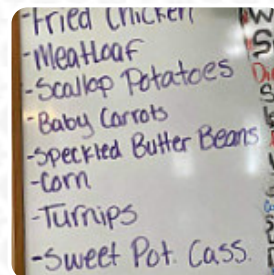 -Fried Chicken
-Meatloaf
-Scallop Potatoes
-Baby Carrots
-Speckled Butter Beans
-Corn
-Turnips
-Sweet Pot. Cass.